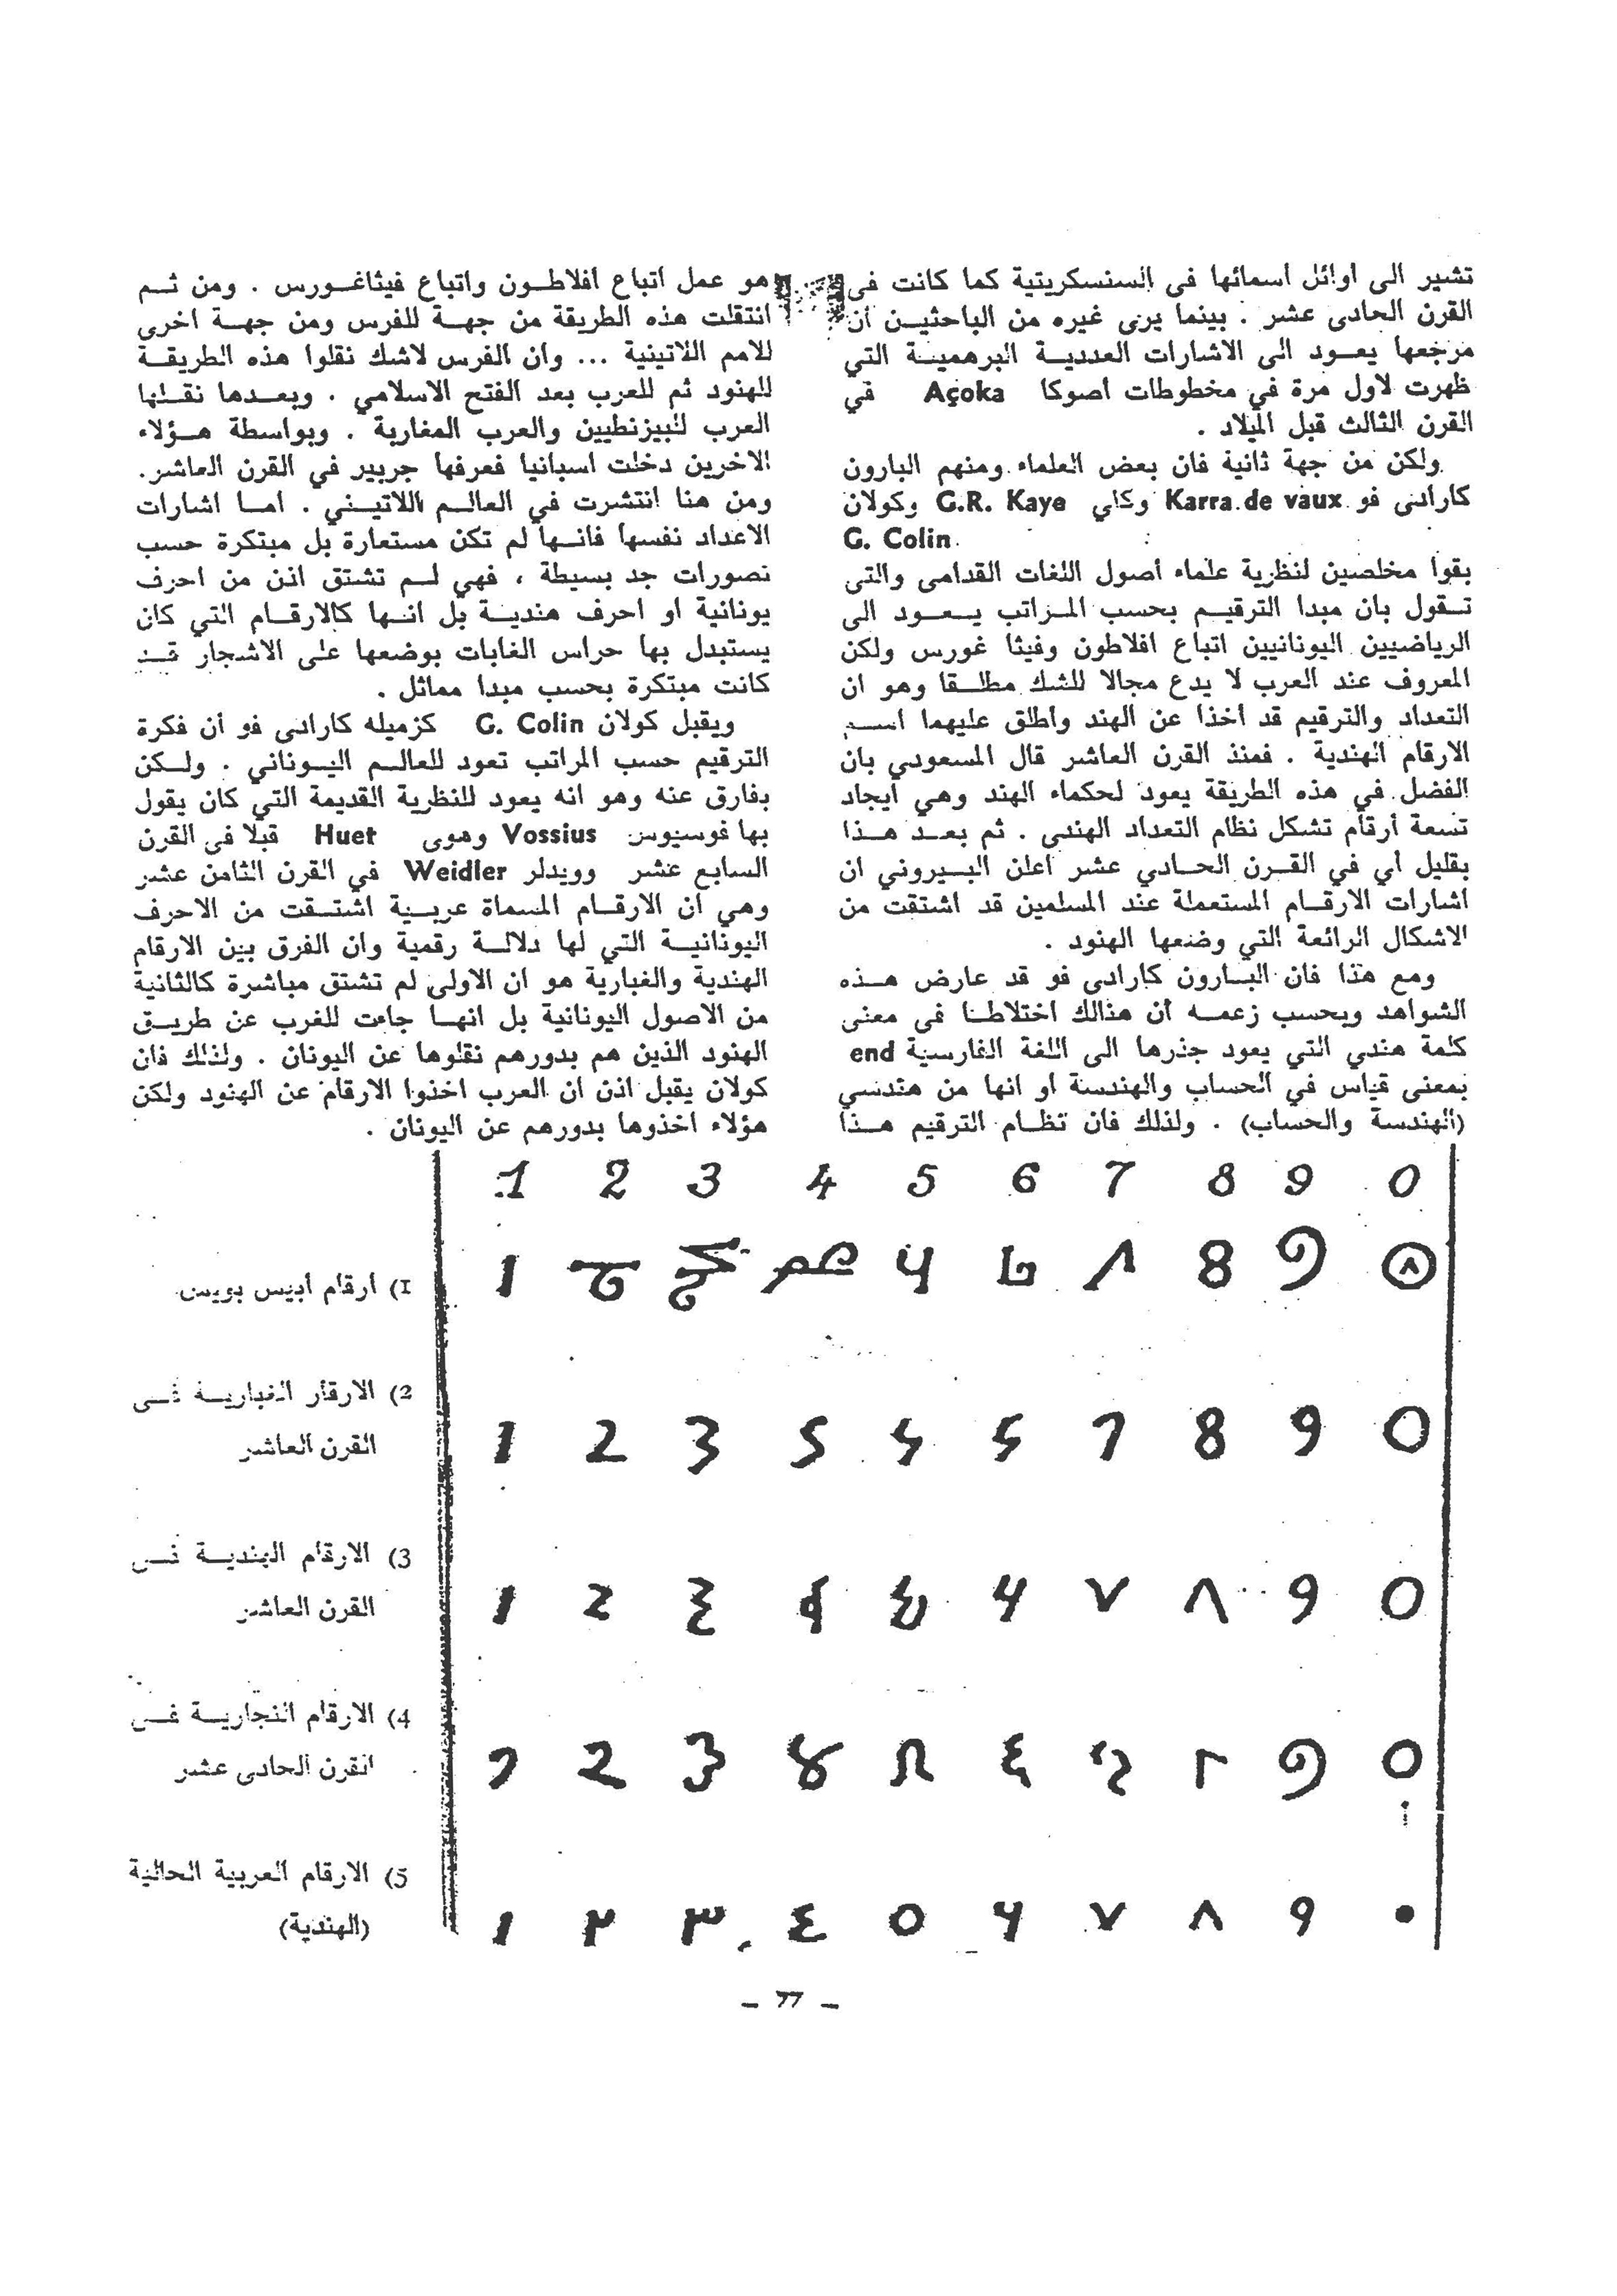 تشير الى أوائل أسمائها فى السنسكريتية كما كانت فى
القرن الحادى عشر . بينما يرى غيره من الباحثيـن أن
مرجعها يعـود الى الاشارات العدديـة البرهميـة التي
ظهرت لاول مرة في مخطوطات أصوكا Açoka في
القرن الثالث قبل الميلاد .
ولكن من جهة ثانية فان بعض العلماء ومنهم البارون
كارادى فو Karra de vaux وكاي G.R. Kaye وكولان
G. Colin
بقوا مخلصين لنظرية علماء أصول اللغات القدامى والتى
تـقول بان مبدا الترقيـم بحسب المـراتب يـعـود الى
الرياضيين اليونانيين اتباع افلاطون وفيثا غورس ولكن
المعروف عند العرب لا يدع مجالا للشك مطلـقا وهو ان
التعداد والترقيم قد أخذا عن الهند وأطلق عليهما اسـم
الارقام الهندية . فمنذ القرن العاشر قال المسعودي بان
الفضل في هذه الطريقة يعود لحكماء الهند وهي ايجاد
تسعة أرقام تشكل نظام التعداد الهندى . ثم بعـد هـذا
بقليل أي في القـرن الحـادي عشر أعلن البـيروني ان
اشارات الارقـام المستعملة عند المسلمين قد اشتقت من
الاشكال الرائعة التي وضعها الهنود .
ومع هذا فان البـارون كارادى فو قد عارض هـذه
الشواهد وبحسب زعمـه أن هنالك اختلاطـا فى معنى
كلمة هندي التي يعود جذرها الى اللغة الفارسية end
بمعنى قياس في الحساب والهندسة أو انها من هندسي
(الهندسة والحساب) . ولذلك فان نظـام الترقيم هـذا
هو عمل اتباع افلاطـون واتباع فيثاغـورس . ومن ثـم
انتقلت هذه الطريقة من جهـة للفرس ومن جهـة اخرى
للامم اللاتينية ... وان الفرس لاشك نقلوا هذه الطريقـة
للهنود ثم للعرب بعد الفتح الاسلامي . وبعـدها نقـلها
العرب للبيزنطيين والعرب المغاربة . وبواسطة هـؤلاء
الاخرين دخلت اسبانيا فعرفها جربير في القرن العاشر.
ومن هنا انتشرت في العالـم اللاتيـني . امـا اشارات
الاعداد نفسها فانـها لم تكن مستعارة بل مبتكرة حسب
تصورات جد بسيطة ، فهي لـم تشتق اذن من احرف
يونانية او احرف هنديـة بل انـها كالارقـام التي كان
يستبدل بها حراس الغابات بوضعها على الاشجار قـد
كانت مبتكرة بحسب مبدا مماثل .
ويقبل كولان G. Colin كزميله كارادى فو أن فكرة
الترقيم حسب المراتب تعود للعالـم اليـوناني . ولـكن
يفارق عنه وهو انه يعود للنظرية القديمة التي كان يقول
بها فوسيوس Vossius وهوى Huet قبلا فى القرن
السابع عشر وويدلر Weidler في القرن الثامن عشر
وهي أن الارقـام المسماة عربـية اشتـقت من الاحرف
اليونانيـة التي لها دلالـة رقمية وان الفرق بين الارقام
الهندية والغبارية هو ان الاولى لم تشتق مباشرة كالثانية
من الاصول اليونانية بل انهـا جاءت للغرب عن طريـق
الهنود الذين هم بدورهم نقلوها عن اليونان . ولذلك فان
كولان يقبل اذن ان العرب اخذوا الارقام عن الهنود ولكن
هؤلاء اخذوها بدورهم عن اليونان .
1 2 3 4 5 6 7 8 9 0
1) أرقام أبيس بويس
2) الارقام الغباريـة فـى
القرن العاشر
3) الارقام الهنديـة فـى
القرن العاشر
4) الارقام النجاريـة فـى
القرن الحادى عشر
5) الارقام العربية الحالية
(الهندية)
١ ٢ ٣ ٤ ٥ ٦ ٧ ٨ ٩ ٠
— 77 —